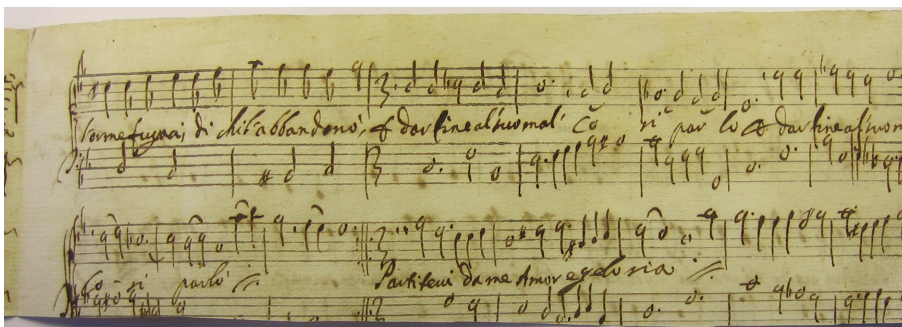 fuggi di chi t'abbandonò & dar fine al suo mal' Co sì parlò & dar fine al suo m
Co sì parlò
Partitevi da me Amor e gelosia